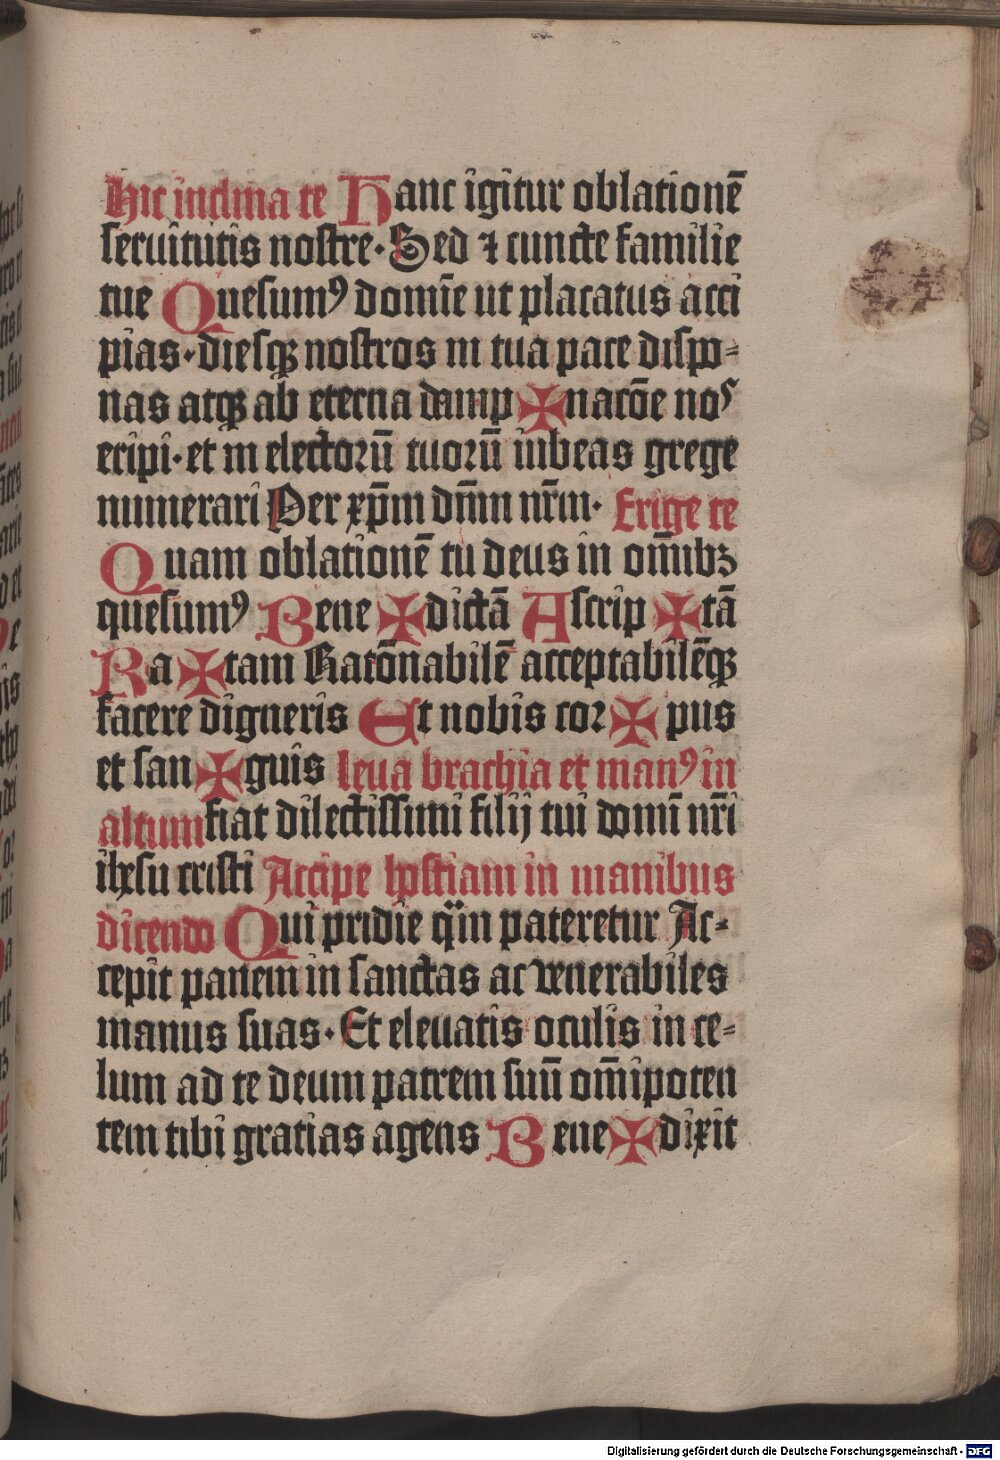 Hic inclina te Hanc igitur oblationē
seruitutis nostre· Sed ⁊ cuncte familie
tue Quesumꝰ domīe ut placatus acci
pias· diesqꝫ nostros in tua pace dispo⸗
nas atqꝫ ab eterna damp✠nacōe noˢ
eripi· et in electorū tuorū iubeas grege
numerari Per xp̄m dn̄m nr̄m· Erige te
Quam oblationē tu deus in om̄ibꝫ
quesumꝰ Bene ✠dictā Ascrip ✠tā
Ra ✠tam Racōnabilē acceptabilēqꝫ
facere digneris Et nobis cor✠ pus
et san✠guis leua brachia et manꝰ in
altum fiat dilectissimi filij tui domī nr̄i
ihesu cristi Accipe hostiam in manibus
dicendo Qui pridie q̈m pateretur Ac⸗
cepit panem in sanctas ac venerabiles
manus suas· Et eleuatis oculis in ce⸗
lum ad te deum patrem suū om̄ipoten
tem tibi gratias agens Bene✠dixit
Digitalisierung gefördert durch die Deutsche Forschungsgemeinschaft - DFG